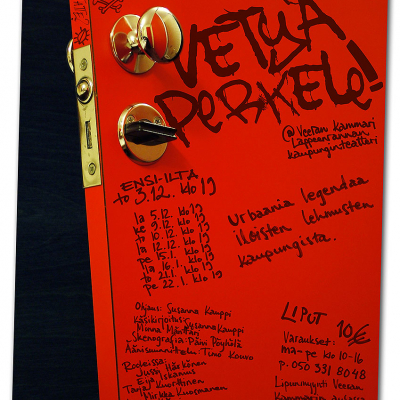 VETYÄ
PERKELE!
@ Veeran Kammari
Lappeenrannan
kaupunginteatteri
ENSI-ILTA
to 3.12. klo 19
la 5.12. klo 19
ke 9.12. klo 19
to 10.12. klo 19
la 12.12. klo 19
pe 15.1. klo 19
la 16.1. klo 19
to 21.1. klo 19
pe 22.1. klo 19
Urbaania legendaa
iloisten lehmusten
kaupungista.
Ohjaus: Susanna Kauppi
Käsikirjoitus: Susanna Kauppi
Minna Mänttäri
Skenografia Päivi Pöyhölä
Äänisuunnittelu Timo Kouvo
Rooleissa:
Jussi Härkönen
Eija Iskanius
Tanja Kuorttinen
Kuosmanen
LIPUT 10€
Varaukset:
ma-pe klo 10-16
p. 050 331 8048
Lipunmyynti Veeran
Kammarin aulassa